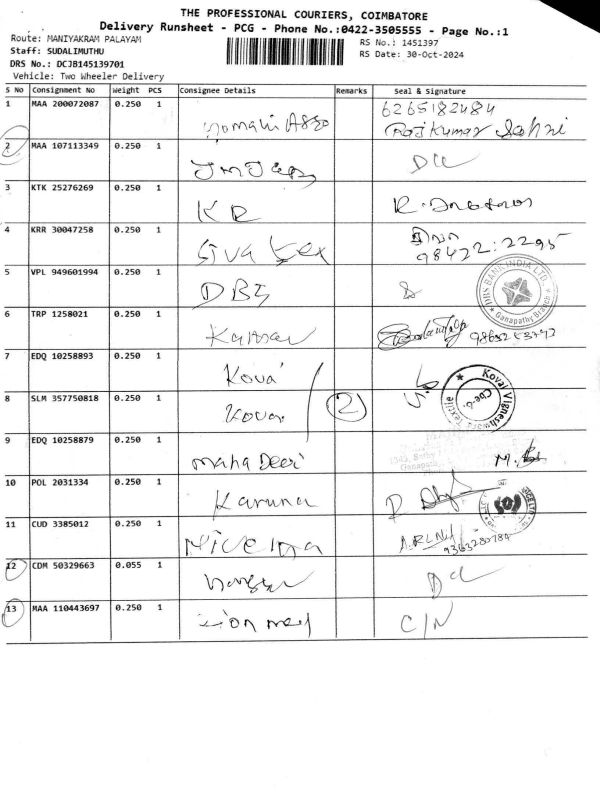 THE PROFESSIONAL COURIERS, COIMBATORE
Delivery Runsheet - PCG - Phone No.:0422-3505555 - Page No.:1
Route: MANIYAKRAM PALAYAM
RS No.: 1451397
Staff: SUDALIMUTHU
RS Date: 30-Oct-2024
DRS No.: DCJB145139701
Vehicle: Two Wheeler Delivery
S No Consignment No Weight PCS Consignee Details Remarks Seal & Signature
1 MAA 200072087 0.250 1 6265182484
Rajkumar Sahni
2 MAA 107113349 0.250 1
3 KTK 25276269 0.250 1 KR
4 KRR 30047258 0.250 1 Siva Tex 98422:2295
5 VPL 949601994 0.250 1 DBS
DBS BANK INDIA LTD.
Ganapathy Branch
6 TRP 1258021 0.250 1
7 EDQ 10258893 0.250 1 Kovai
8 SLM 357750818 0.250 1 Kovai 2
Kovai Vigneshwara Textile
Cbe-6.
9 EDQ 10258879 0.250 1 Maha Deevi
10 POL 2031334 0.250 1 Karuna
11 CUD 3385012 0.250 1
12 CDM 50329663 0.055 1
13 MAA 110443697 0.250 1 C/N